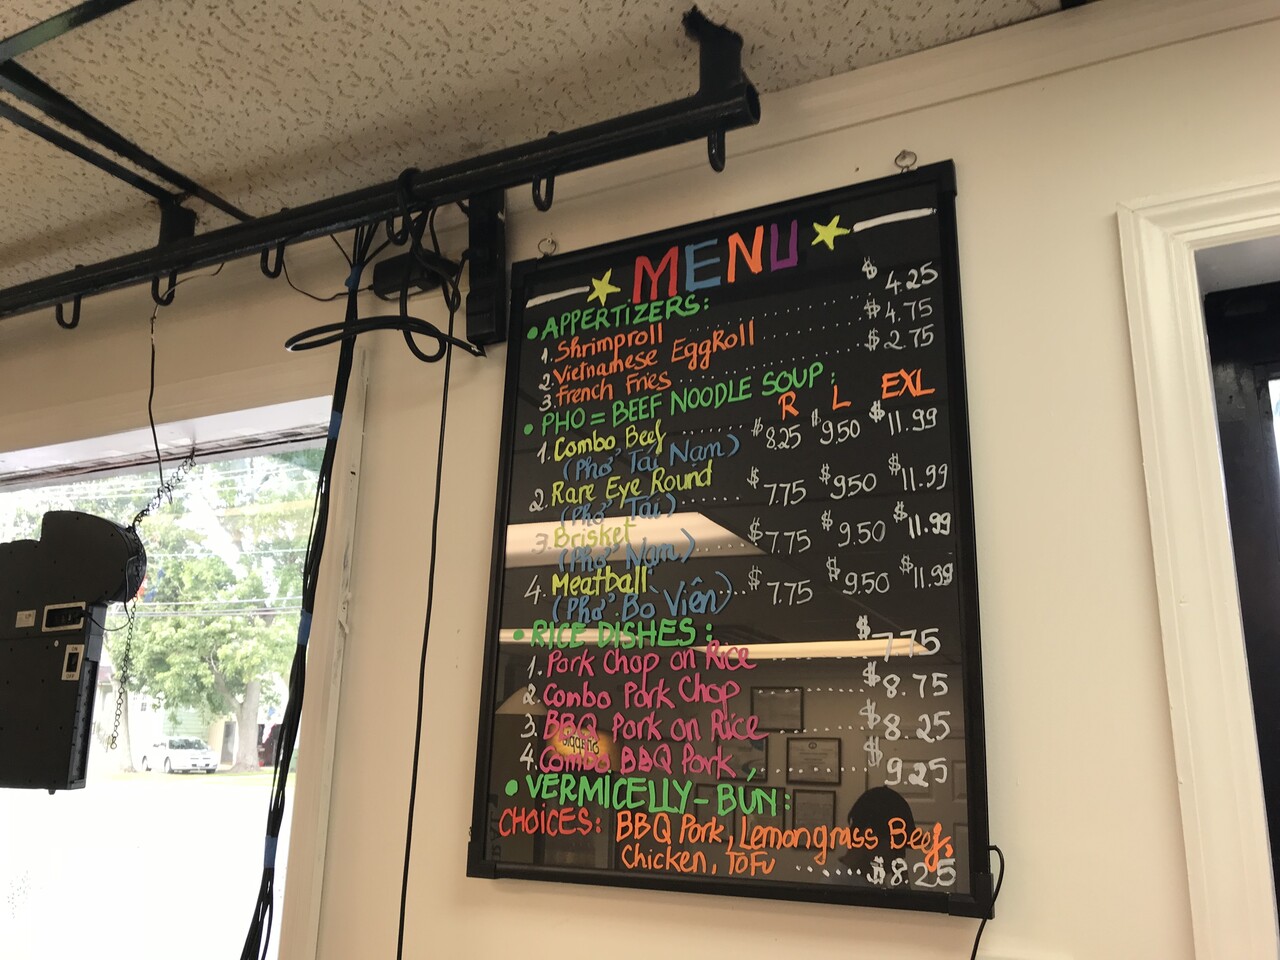 MENU
• APPERTIZERS:
1. Shrimproll ........ $4.25
2. Vietnamese EggRoll ........ $4.75
3. French Fries ........ $2.75
• PHO = BEEF NOODLE SOUP:
R L EXL
1. Combo Beef $8.25 $9.50 $11.99
(Phở Tái Nạm)
2. Rare Eye Round ...... $7.75 $9.50 $11.99
(Phở Tái)
3. Brisket ...... $7.75 $9.50 $11.99
(Phở Nạm)
4. Meatball ...... $7.75 $9.50 $11.99
(Phở Bò Viên)
• RICE DISHES:
1. Pork Chop on Rice $7.75
2. Combo Pork Chop ...... $8.75
3. BBQ Pork on Rice ...... $8.25
4. Combo BBQ Pork, ...... $9.25
• VERMICELLY - BUN:
CHOICES: BBQ Pork, Lemongrass Beef,
Chicken, ToFu ...... $8.25